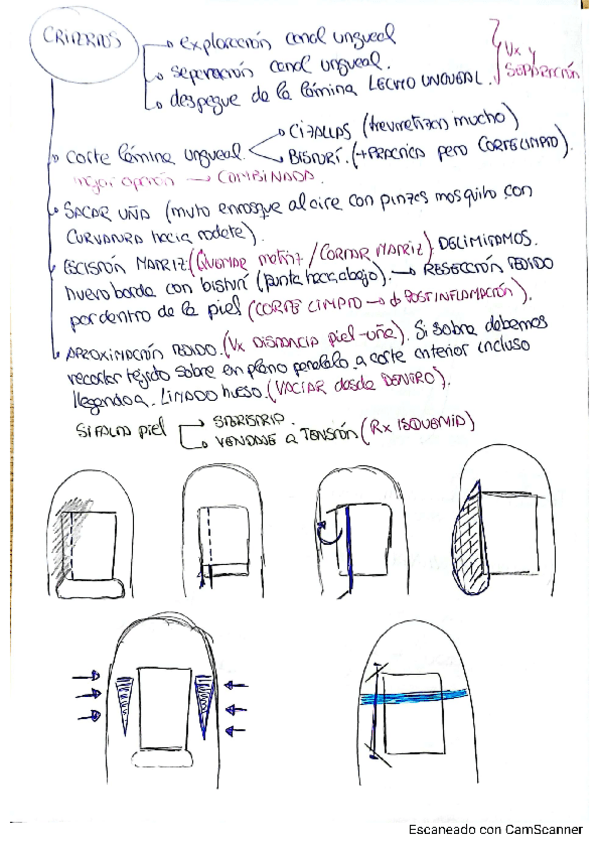 CRITERIOS
exploración canal ungueal
separación canal ungueal.
despegue de la lámina LECHO UNGUEAL.
Vx y
SEPARACIÓN
Corte lámina ungueal.
CIZALLAS (traumatizan mucho)
BISTURÍ. (+PRÁCTICA pero CORTE LIMPIO).
mejor opción → COMBINADA.
SACAR UÑA (muto enrosque al aire con pinzas mosquito con
CURVATURA hacia rodete).
ESCISIÓN MATRIZ (QUEMAR matriz / CORTAR MATRIZ) DELIMITAMOS.
nuevo borde con bisturí (punta hacia abajo). → RESECCIÓN TEJIDO
por dentro de la piel (CORTE LIMPIO → ↓ POST INFLAMACIÓN).
APROXIMACIÓN TEJIDO. (Vx DISTANCIA piel-uña). Si sobra debemos
recortar tejido sobre en plano paralelo a corte anterior incluso
llegando a. LIMADO hueso. (VACIAR desde DENTRO).
SI FALTA piel
→ STERISTRIP.
→ VENDAJE A TENSIÓN (Rx ISQUEMIA)
Escaneado con CamScanner